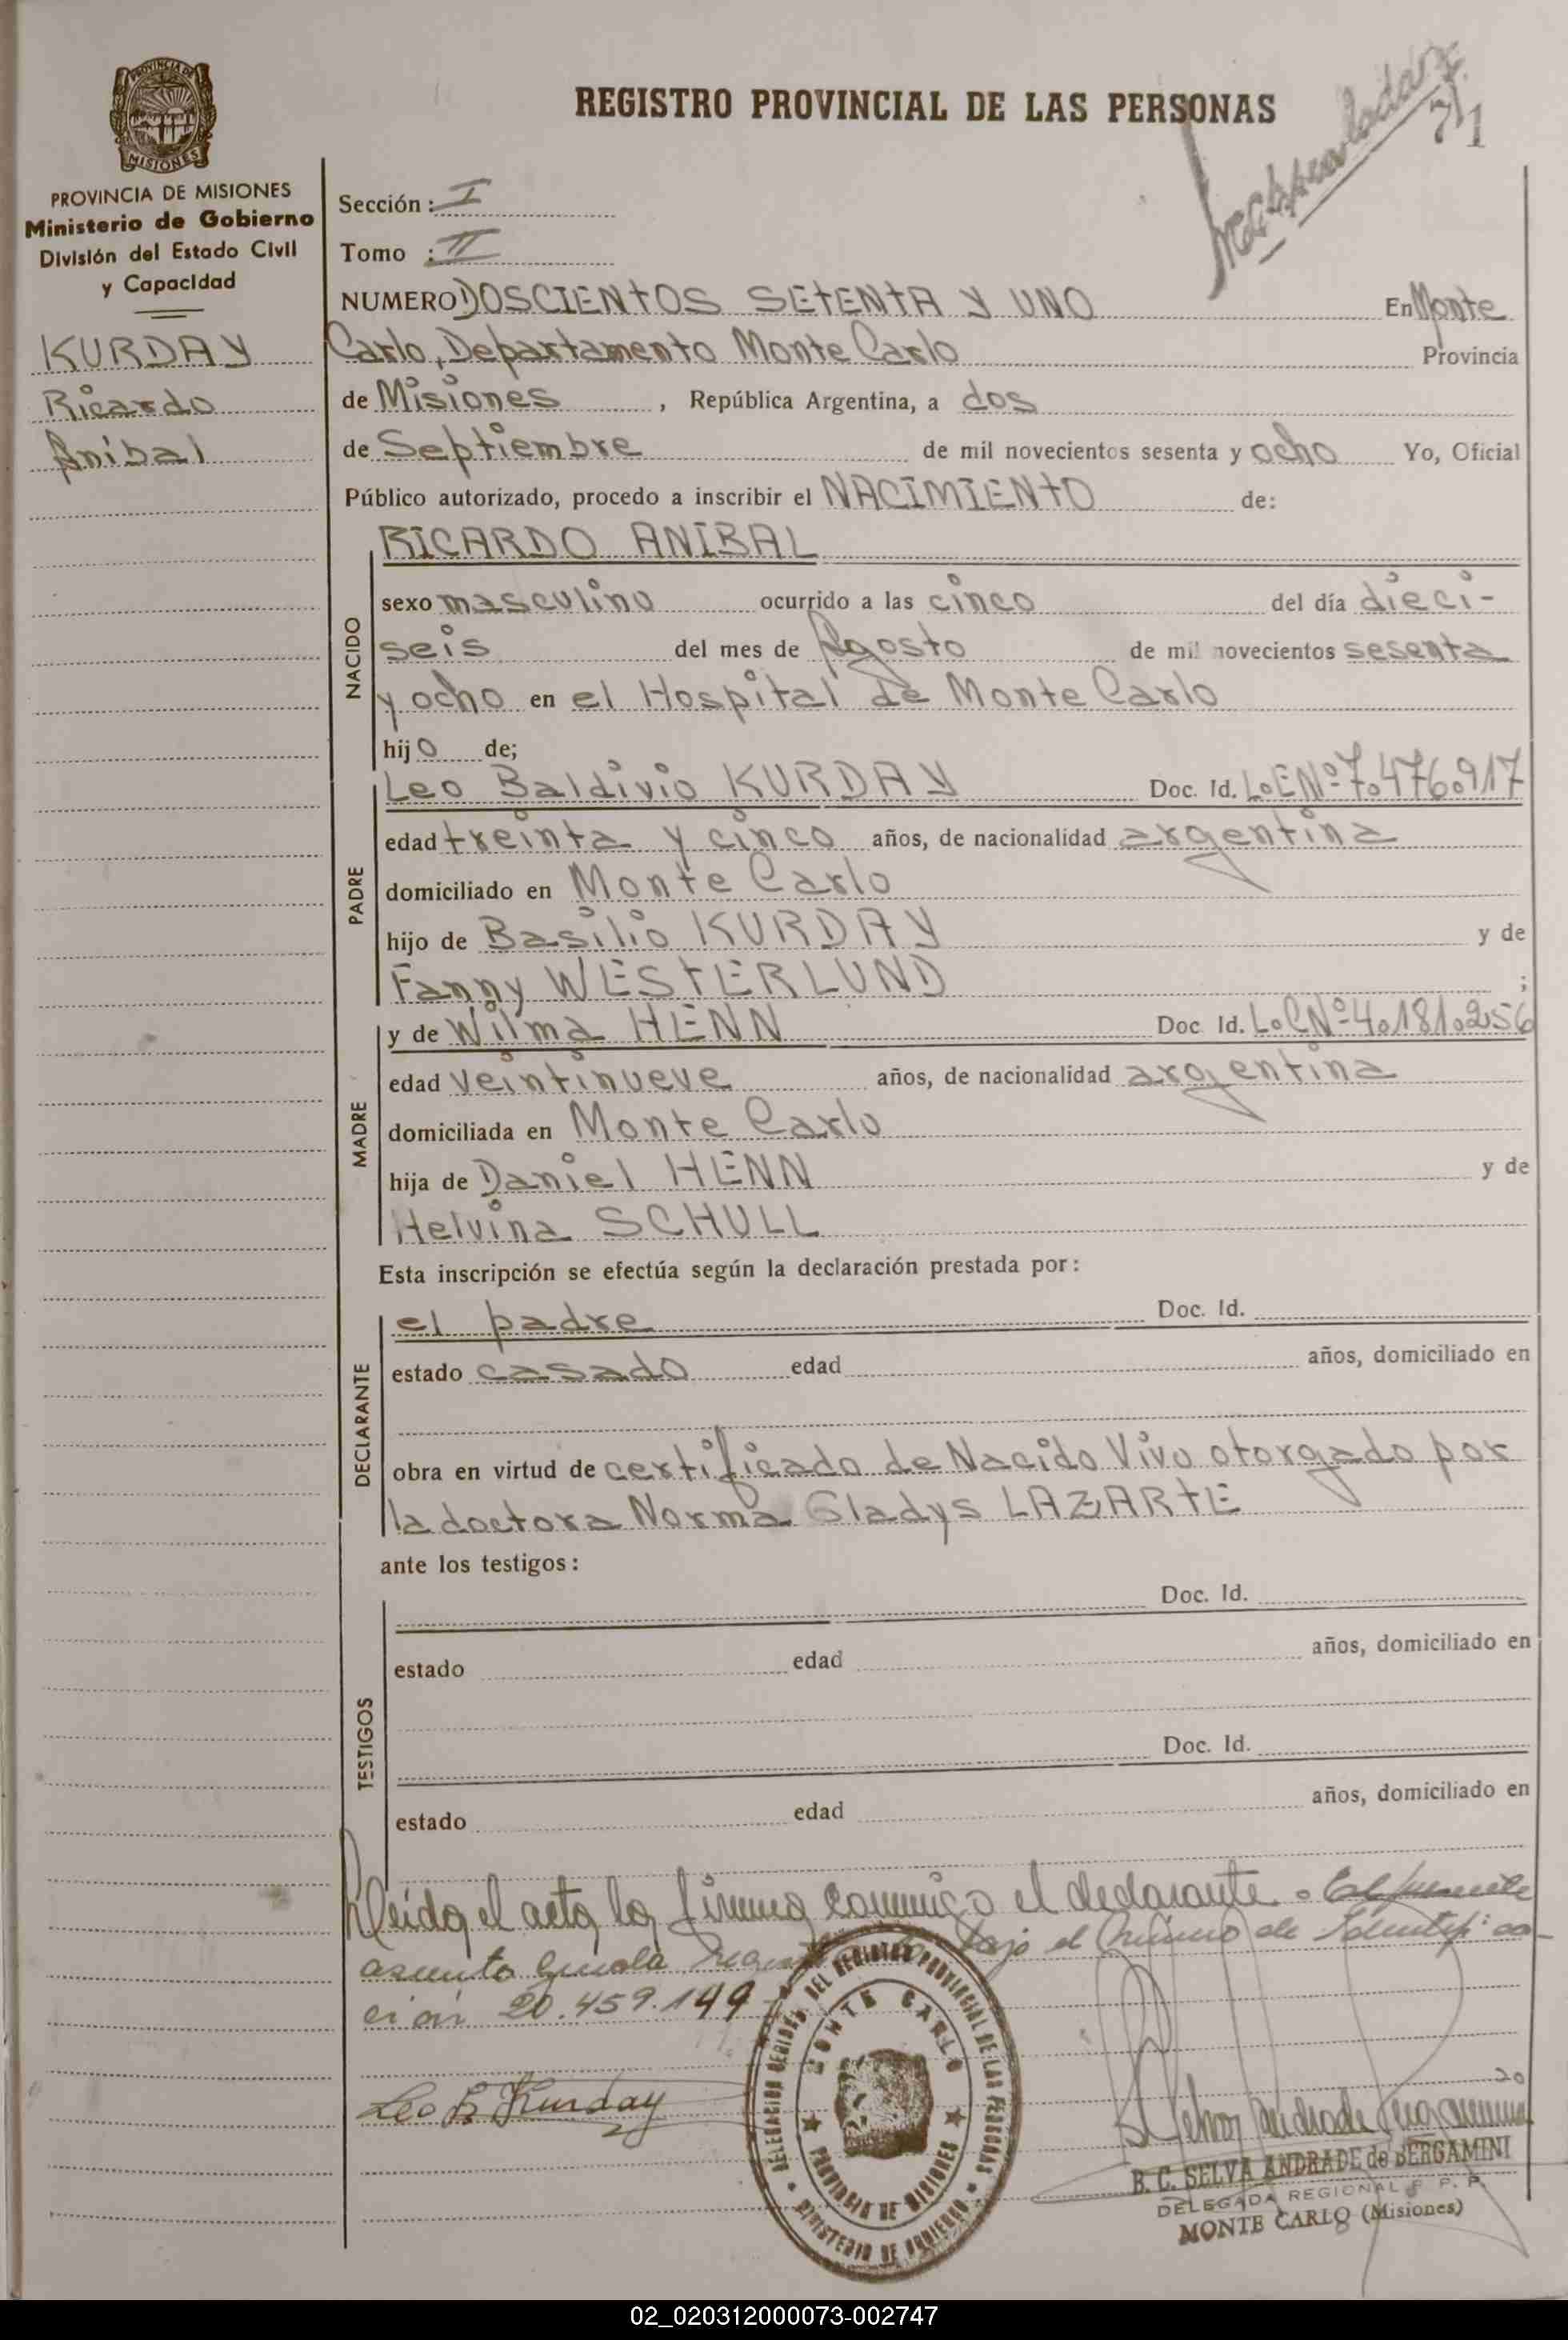 REGISTRO PROVINCIAL DE LAS PERSONAS
7/1
PROVINCIA DE MISIONES
PROVINCIA DE MISIONES
Ministerio de Gobierno
División del Estado Civil
y Capacidad
KURDAY
Ricardo
Aníbal
Sección : I
Tomo : II
NUMERO DOSCIENTOS SETENTA Y UNO En Monte
Carlo, Departamento Monte Carlo Provincia
de Misiones , República Argentina, a dos
de Septiembre de mil novecientos sesenta y ocho Yo, Oficial
Público autorizado, procedo a inscribir el NACIMIENTO de:
NACIDO
RICARDO ANIBAL
sexo masculino ocurrido a las cinco del día dieci-
seis del mes de Agosto de mil novecientos sesenta
y ocho en el Hospital de Monte Carlo
hijo de;
PADRE
Leo Baldivio KURDAY Doc. Id. L.E.Nº 7.476.917
edad treinta y cinco años, de nacionalidad argentina
domiciliado en Monte Carlo
hijo de Basilio KURDAY y de
Fanny WESTERLUND ;
MADRE
y de Wilma HENN Doc Id. L.C.Nº 4.181.256
edad veintinueve años, de nacionalidad argentina
domiciliada en Monte Carlo
hija de Daniel HENN y de
Helvina SCHULL
Esta inscripción se efectúa según la declaración prestada por:
DECLARANTE
el padre Doc. Id.
estado casado edad años, domiciliado en
obra en virtud de certificado de Nacido Vivo otorgado por
la doctora Norma Gladys LAZARTE
ante los testigos:
TESTIGOS
Doc. Id.
estado edad años, domiciliado en
Doc. Id.
estado edad años, domiciliado en
Leída el acta la firma conmigo el declarante. El presente
asiento queda bajo el Número de Identifica-
ción 20.459.149
Leo B. Kurday
DELEGACION REGIONAL DEL REGISTRO PROVINCIAL DE LAS PERSONAS
MONTE CARLO
PROVINCIA DE MISIONES
MINISTERIO DE GOBIERNO
B. C. SELVA ANDRADE de BERGAMINI
DELEGADA REGIONAL R. P. P.
MONTE CARLO (Misiones)
02_020312000073-002747